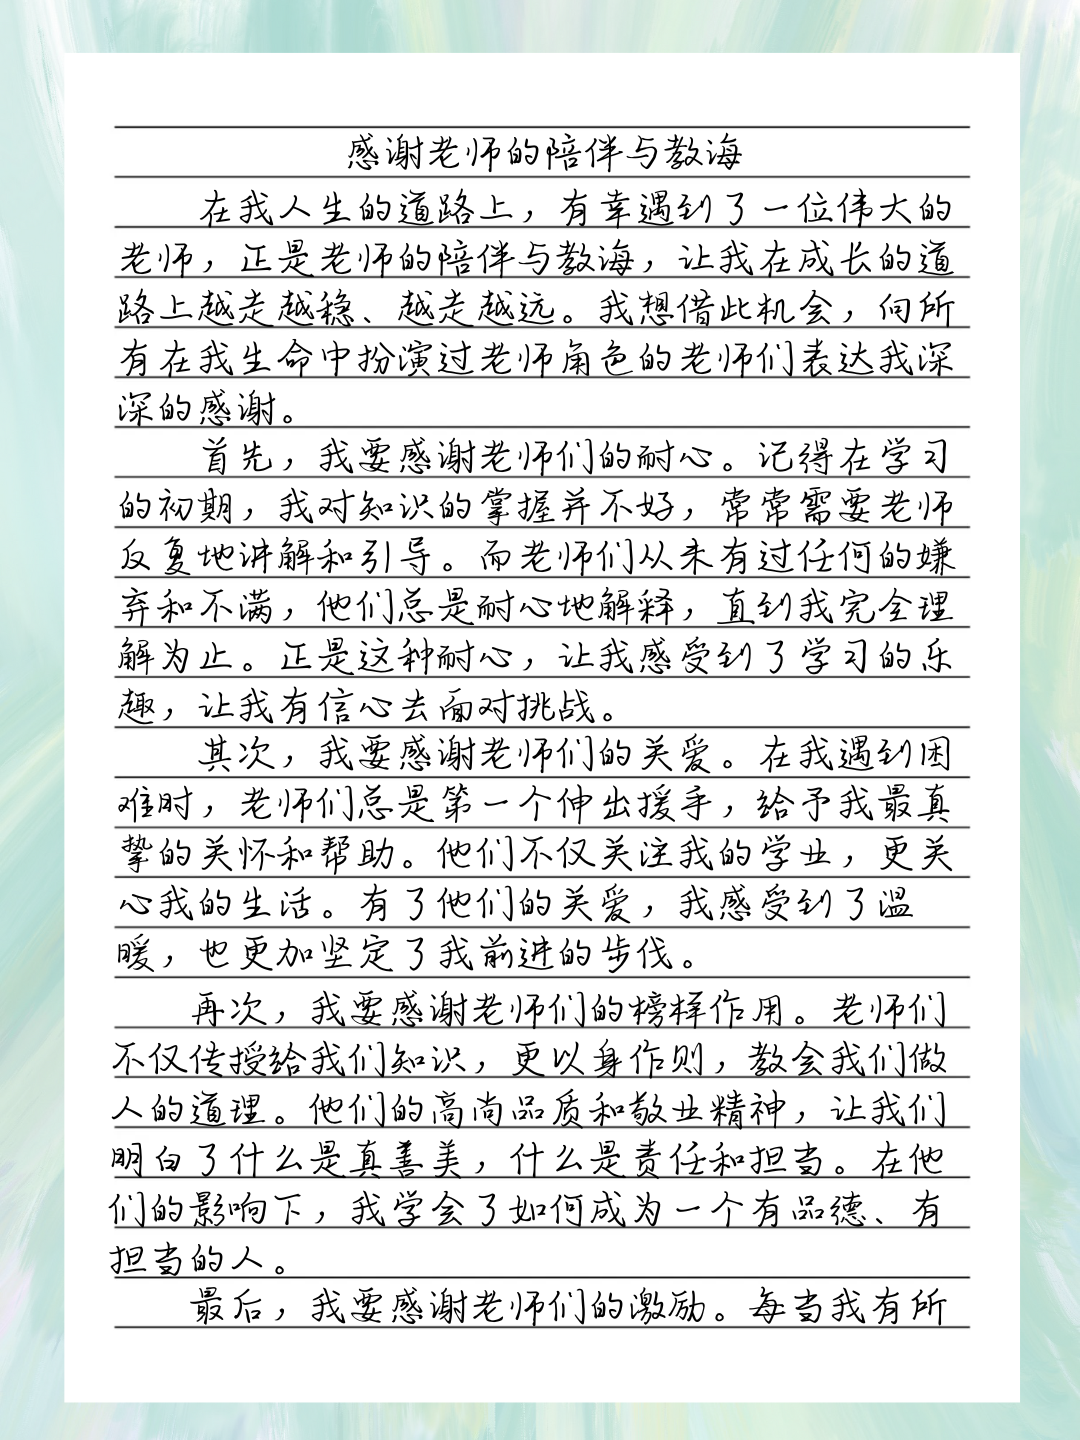 感谢老师的陪伴与教海
在我人生的道路上，有幸遇到了一位伟大的
老师，正是老师的陪伴与教海，让我在成长的道
路上越走越稳、越走越远。我想借此机会，向所
有在我生命中扮演过老师角色的老师们表达我深
深的感谢。
首先，我要感谢老师们的耐心。记得在学习
的初期，我对知识的掌握并不好，常常需要老师
反复地讲解和引导。而老师们从未有过任何的嫌
弃和不满，他们总是耐心地解释，直到我完全理
解为止。正是这种耐心，让我感受到了学习的乐
趣，让我有信心去面对挑战。
其次，我要感谢老师们的关爱。在我遇到困
难时，老师们总是第一个伸出援手，给予我最真
挚的关怀和帮助。他们不仅关注我的学业，更关
心我的生活。有了他们的关爱，我感受到了温
暖，也更加坚定了我前进的步伐。
再次，我要感谢老师们的榜样作用。老师们
不仅传授给我们知识，更以身作则，教会我们做
人的道理。他们的高尚品质和敬业精神，让我们
明白了什么是真善美，什么是责任和担当。在他
们的影响下，我学会了如何成为一个有品德、有
担当的人。
最后，我要感谢老师们的激励。每当我有所